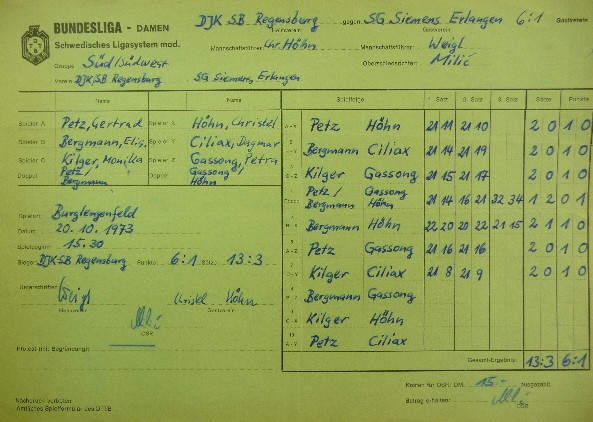 BUNDESLIGA - DAMEN
DJK SB. Regensburg gegen SG. Siemens Erlangen 6:1
Heimverein Gastverein
Schwedisches Ligasystem mod.
Mannschaftsführer: Chr. Höhn Mannschaftsführer: Weigl
Gruppe Süd/Südwest Oberschiedsrichter: Milić
Verein DJK/SB Regensburg SG Siemens, Erlangen
Name Name Spielfolge 1. Satz 2. Satz 3. Satz Sätze Punkte
Spieler A Petz, Gertrud Spieler X Höhn, Christel
Spieler B Bergmann, Elis. Spieler Y Ciliax, Dagmar
Spieler C Kilger, Monika Spieler Z Gassong, Petra
Doppel Petz/ Bergmann Doppel Gassong/ Höhn
A-X Petz Höhn 21 11 21 10 2 0 1 0
Bergmann Ciliax 21 14 21 19 2 0 1 0
C-Z Kilger Gassong 21 15 21 17 2 0 1 0
Doppel Petz/ Bergmann Gassong Höhn 21 14 16 21 32 34 1 2 0 1
B-X Bergmann Höhn 22 20 20 22 21 15 2 1 1 0
A-Z Petz Gassong 21 16 21 16 2 0 1 0
C-Y Kilger Ciliax 21 8 21 9 2 0 1 0
B-Z Bergmann Gassong
C-X Kilger Höhn
A-Y Petz Ciliax
Gesamt-Ergebnis: 13:3 6:1
Spielort: Burglengenfeld
Datum: 20.10.1973
Spielbeginn: 15.30
Sieger: DJK-SB Regensburg Punkte: 6:1 Sätze: 13:3
Unterschriften: Weigl Christel Höhn
Heimverein Gastverein
OSR
Protest mit Begründung:
Kosten für OSR: DM. 15.- ausgezahlt
Betrag erhalten:
OSR
Nachdruck verboten
Amtliches Spielformular des DTTB